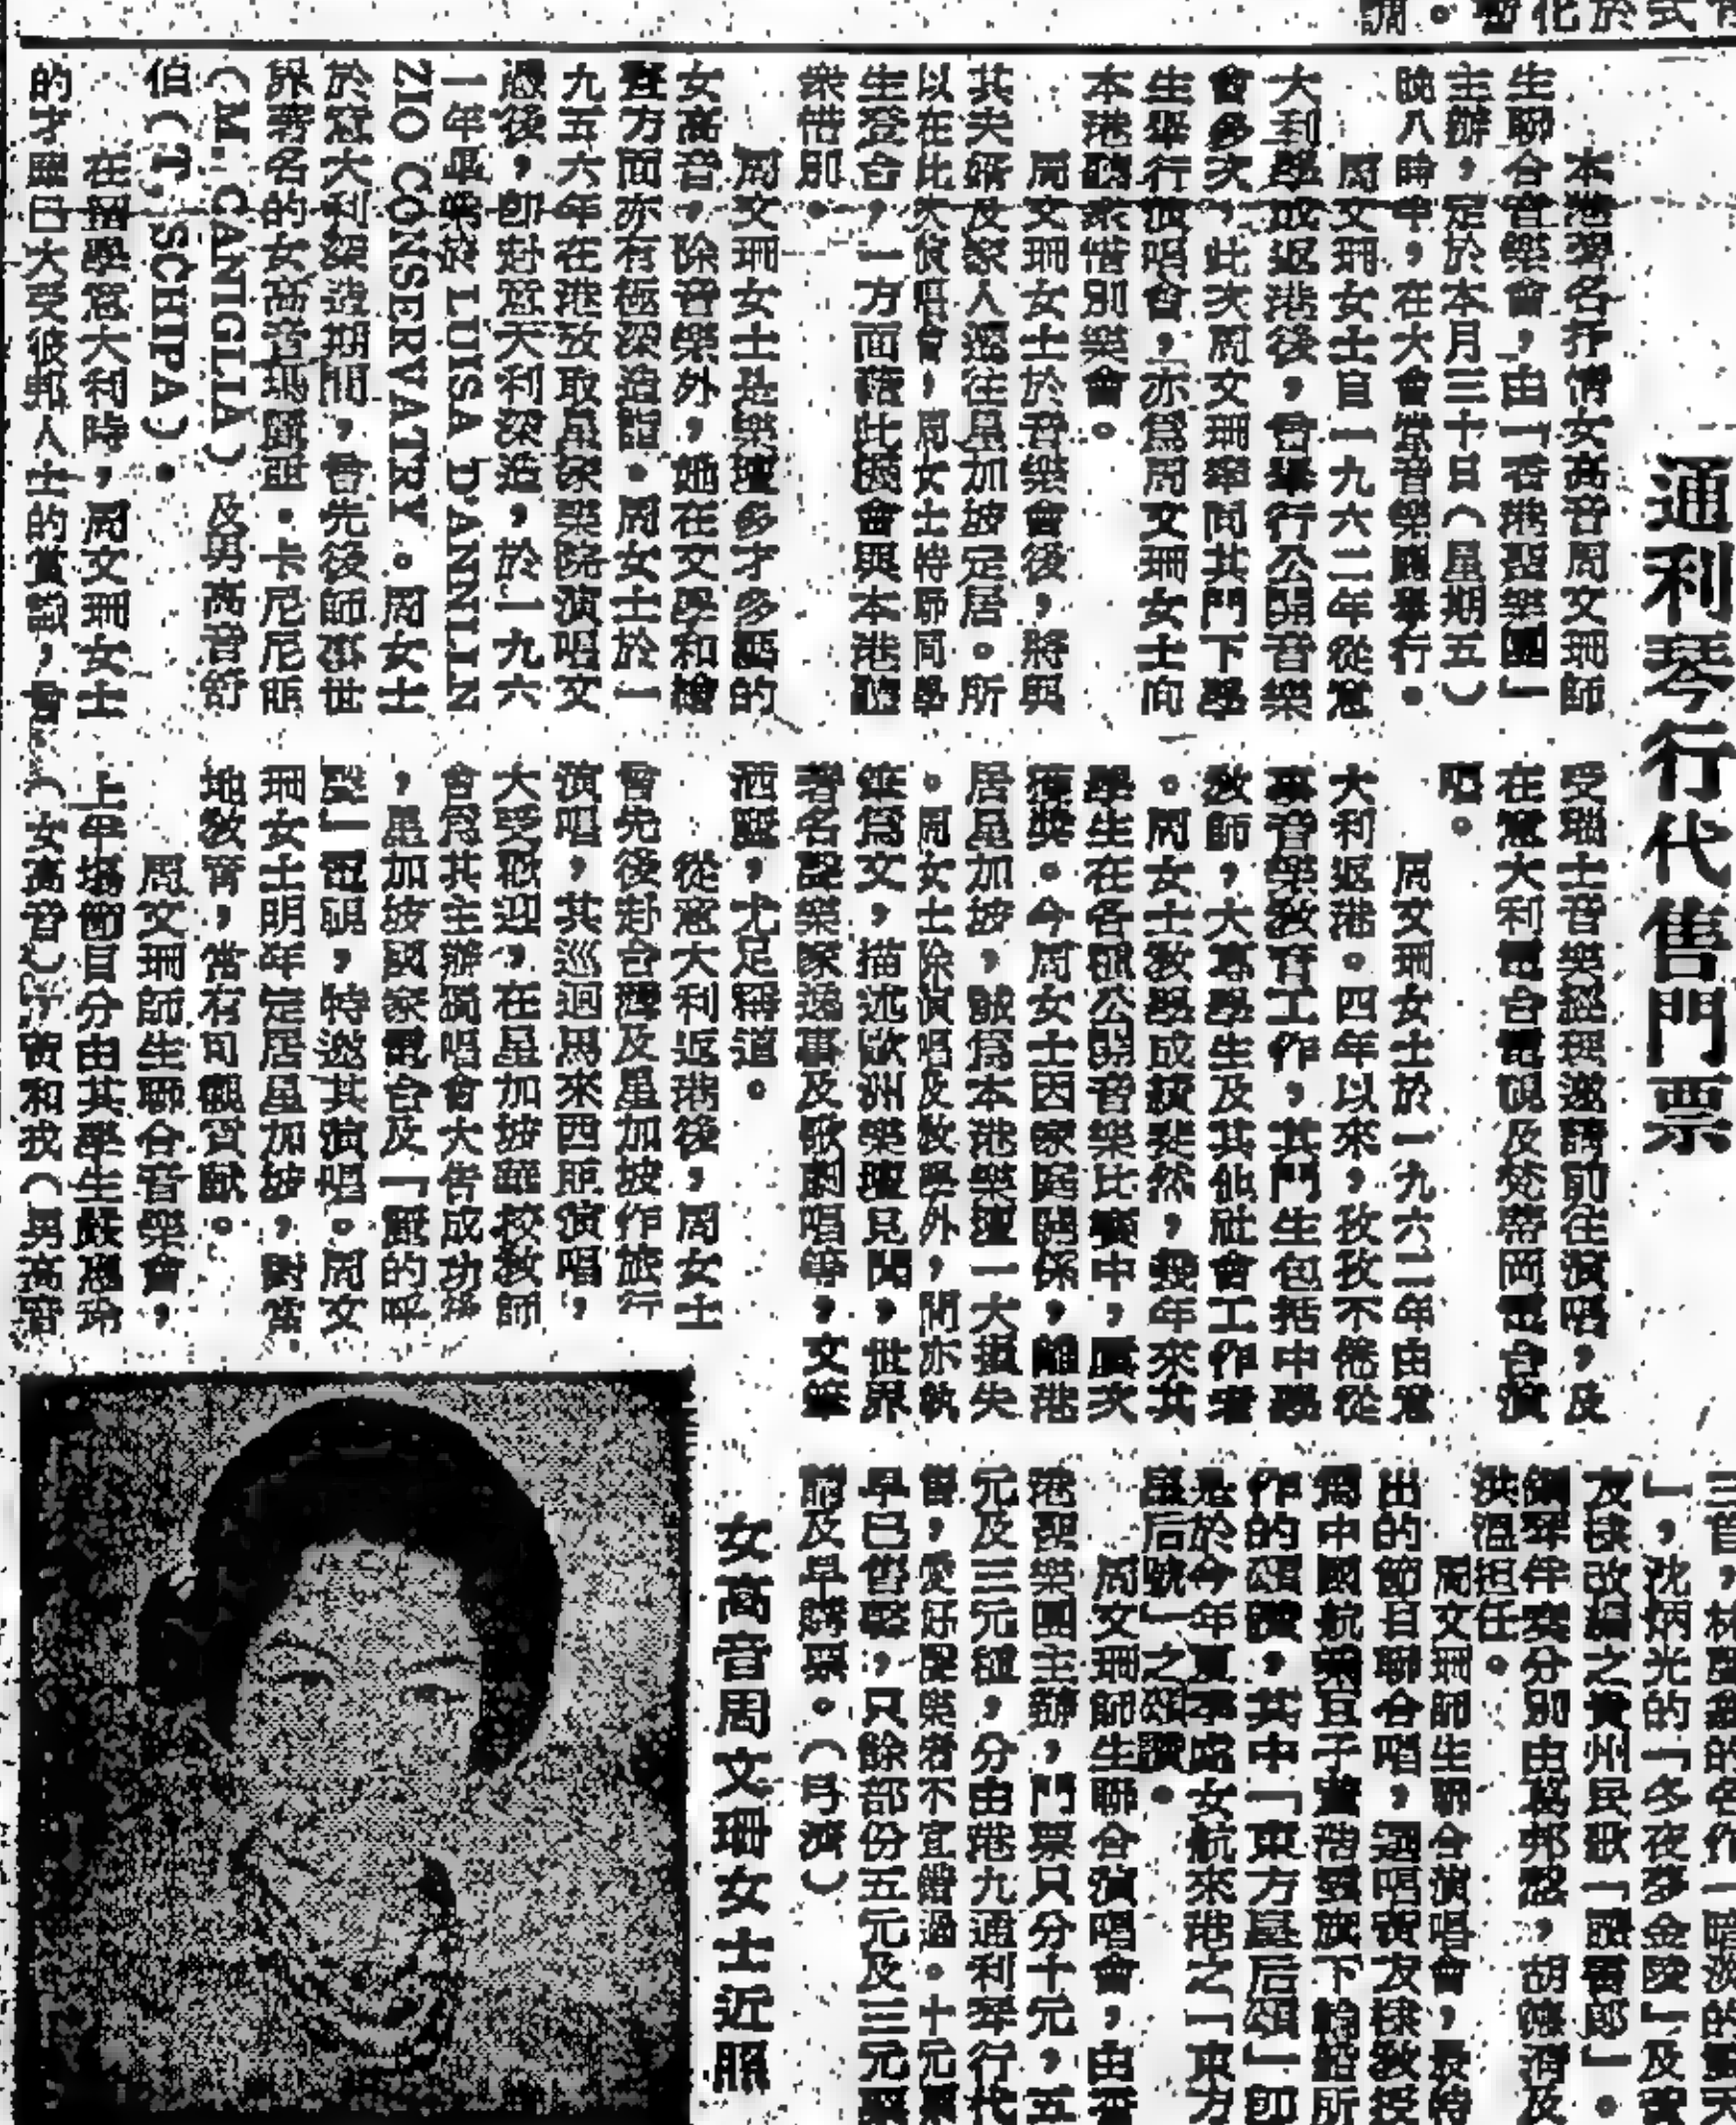 通利琴行代售門票
本港著名抒情女高音周文珊師
生聯合音樂會，由「香港聖樂團」
主辦，定於本月三十日（星期五）
晚八時半，在大會堂音樂廳舉行。
周文珊女士自一九六二年從意
大利學成返港後，曾舉行公開音樂
會多次，此次周文珊率同其門下學
生舉行演唱會，亦爲周文珊女士向
本港聽衆惜別樂會。
周文珊女士於音樂會後，將與
其夫婿及家人遷往星加坡定居。所
以在此次演唱會，周女士特聯同學
生登台，一方面藉此機會與本港聽
衆惜別。
周文珊女士是樂壇多才多藝的
女高音，除音樂外，她在文學和繪
畫方面亦有極深造詣。周女士於一
九五六年在港攷取皇家樂院演唱文
憑後，卽赴意大利深造，於一九六
一年畢業於 LUISA D'ANNLLN
ZIO CONSERVATRY。周女士
於意大利深造期間，曾先後師事世
界著名的女高音瑪麗亞·卡尼尼亞
（M. CANIGLIA）及男高音舒
伯（T. SCHIPA）。
在留學意大利時，周文珊女士
的才華已大受彼邦人士的賞識，曾
受瑞士音樂經理邀請前往演唱，及
在意大利電台電視及梵蒂岡電台演
唱。
周文珊女士於一九六二年由意
大利返港。四年以來，孜孜不倦從
事音樂教育工作，其門生包括中學
教師，大專學生及其他社會工作者
。周女士教學成績斐然，幾年來其
學生在各項公開音樂比賽中，屢次
獲獎。今周女士因家庭關係，離港
居星加坡，誠爲本港樂壇一大損失
。周女士除演唱及教學外，間亦執
筆爲文，描述歐洲樂壇見聞，世界
著名聲樂家逸事及歌劇唱等，文筆
洒脫，尤足稱道。
從意大利返港後，周女士
曾先後赴台灣及星加坡作旅行
演唱，其巡迴馬來西亞演唱，
大受歡迎，在星加坡藝校教師
會爲其主辦獨唱會大告成功後
，星加坡國家電台及「麗的呼
聲」電視，特邀其演唱。周文
珊女士明年定居星加坡，對當
地教育，當有可觀貢獻。
周文珊師生聯合音樂會，
上半塲節目分由其學生
（女高音） 和我（男高音
」，沈炳光的「多夜夢金陵」及
友棣改編之貴州民歌「 」。
鋼琴伴奏分別由 ，胡 及
洪溫担任。
周文珊師生聯合演唱會，最特
出的節目聯合唱，選唱黃友棣教授
爲中國航 旗下輪船所
作的頌讚，其中「東方皇后頌」卽
是於今年夏季處女航來港之「東方
皇后號」之頌讚。
周文珊師生聯合演唱會，由香
港聖樂團主辦，門票只分十元，五
元及三元 ，分由港九通利琴行代
售，愛好聲樂者不宜錯過。十元票
早已售罄，只餘部份五元及三元票
請及早購票。（ ）
女高音周文珊女士近照